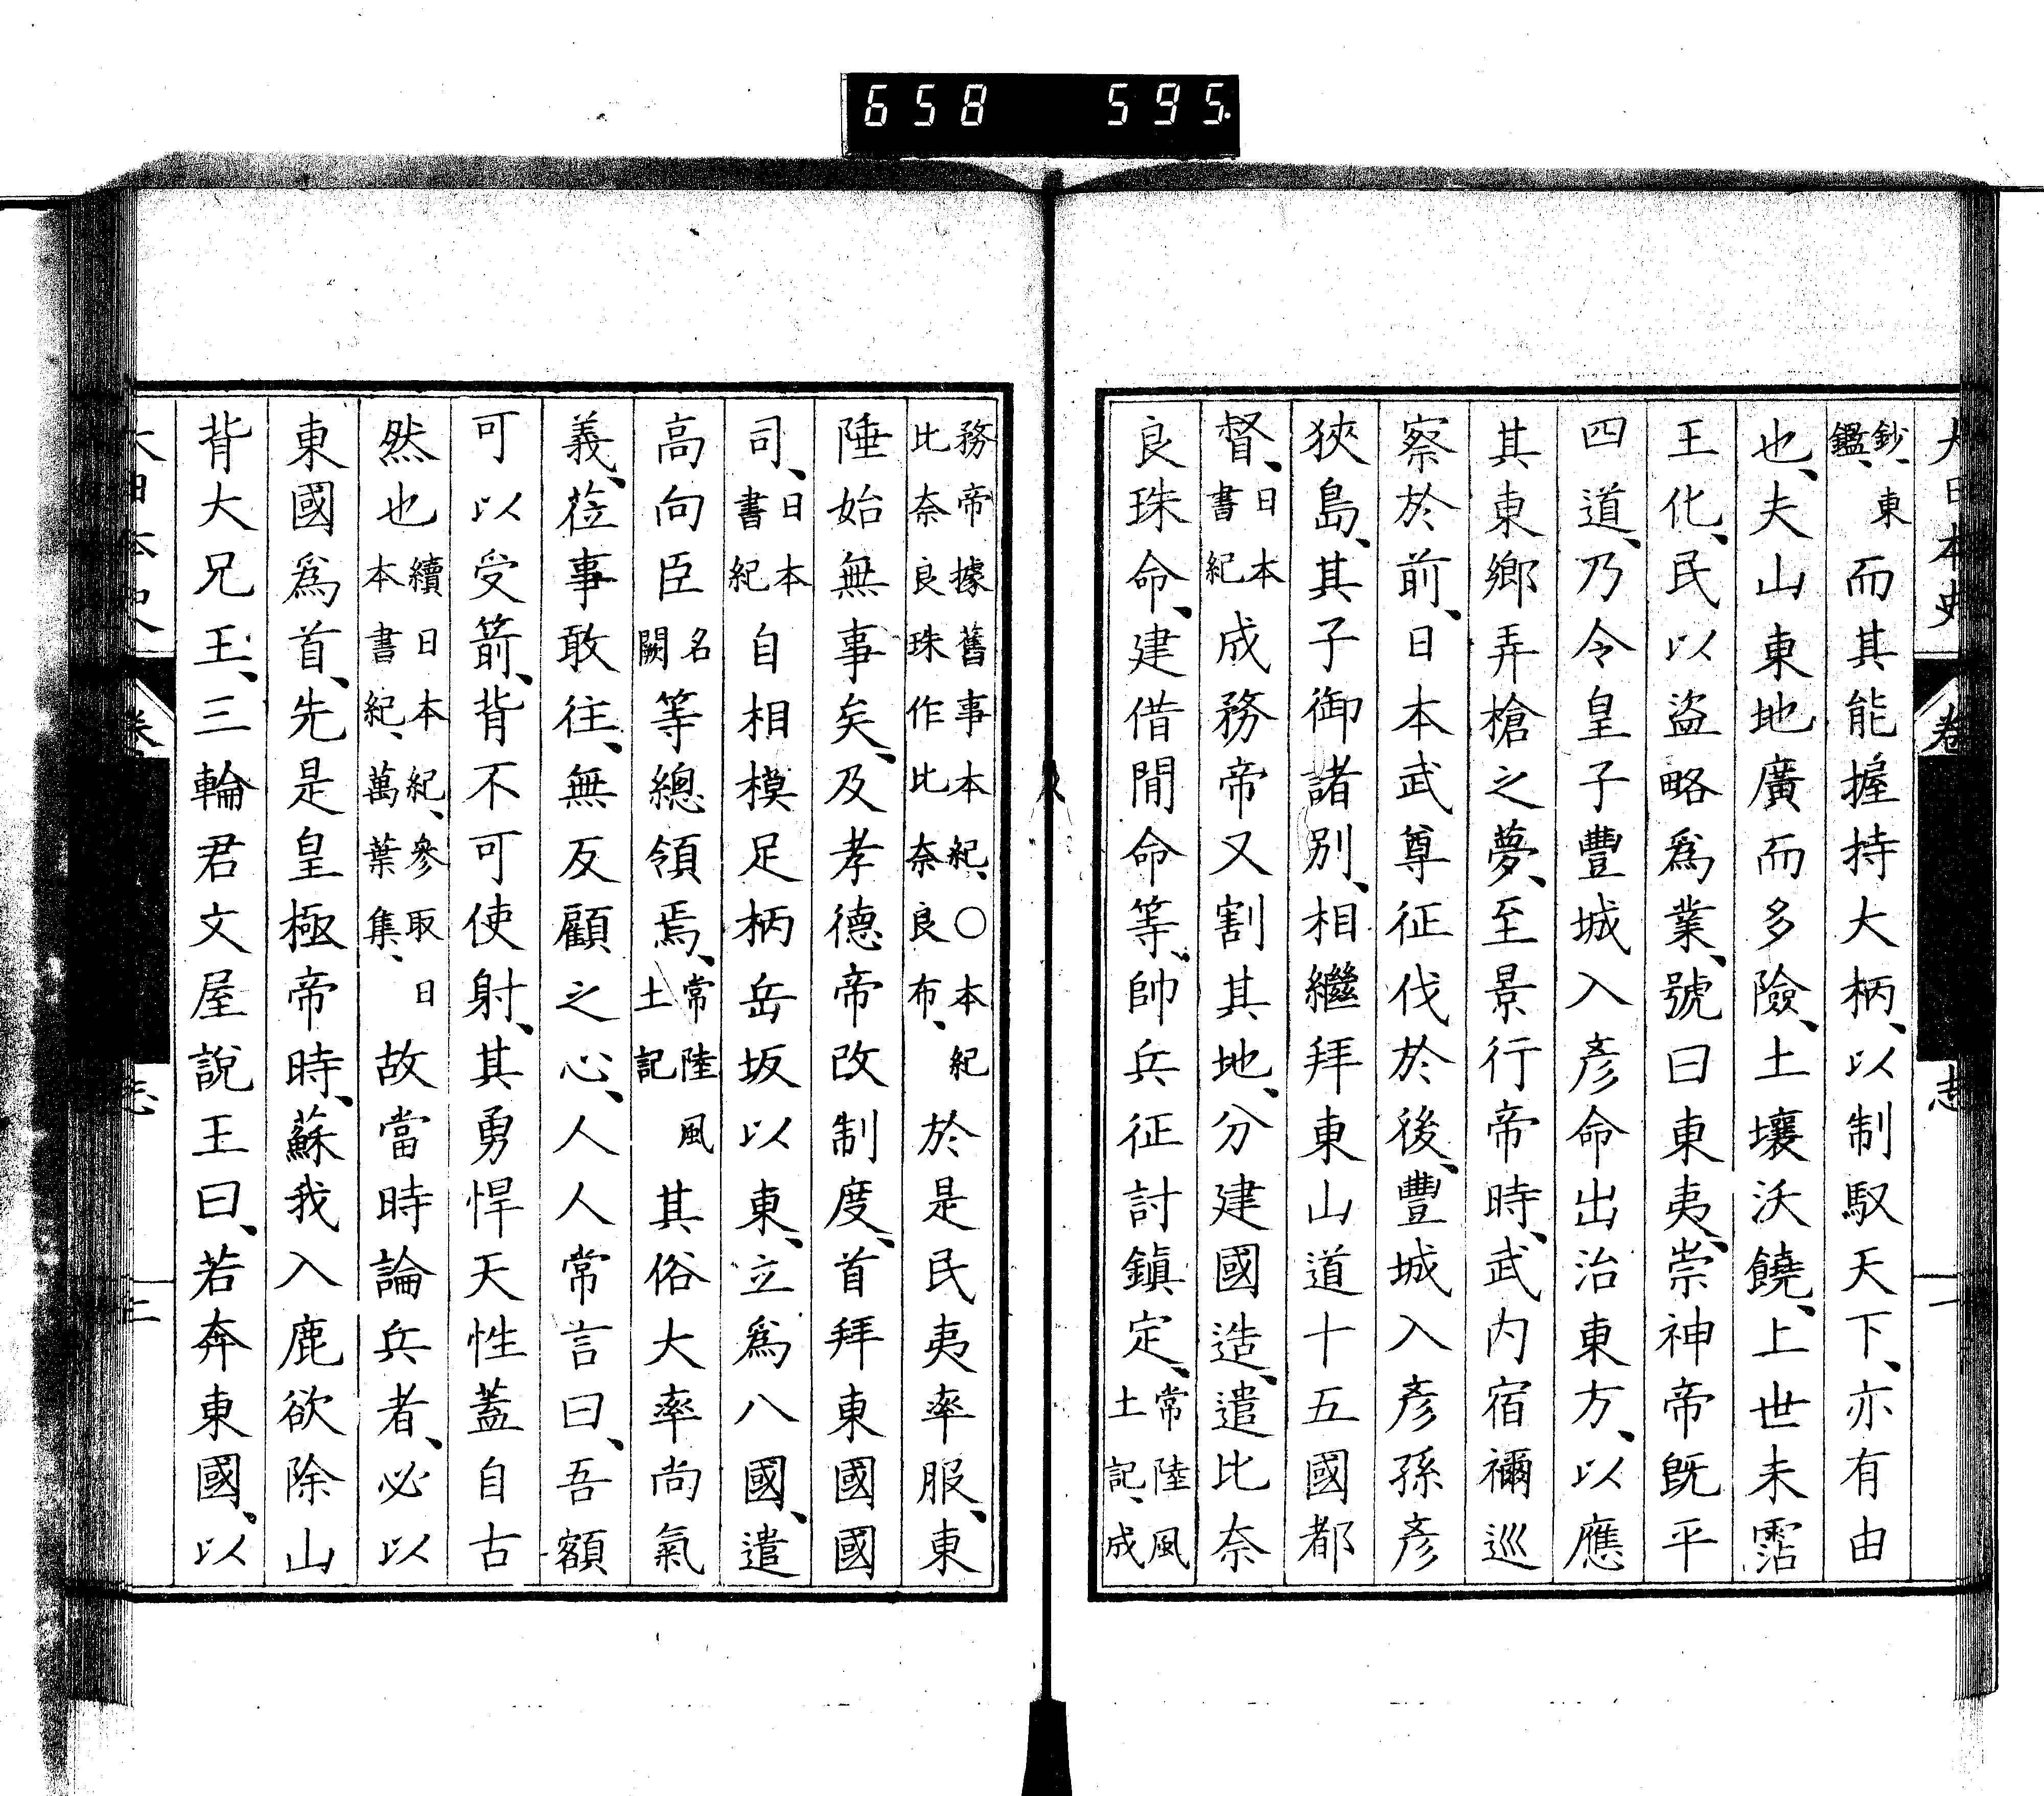 658 595
大日本史 卷 志 一
鈔、東鑑、而其能握持大柄、以制馭天下、亦有由
也、夫山東地廣而多險、土壤沃饒、上世未霑
王化、民以盜略爲業、號曰東夷、崇神帝既平
四道、乃令皇子豐城入彥命出治東方、以應
其東鄉弄槍之夢、至景行帝時、武内宿禰巡
察於前、日本武尊征伐於後、豐城入彥孫彥
狹島、其子御諸別、相繼拜東山道十五國都
督、日本書紀成務帝又割其地、分建國造、遣比奈
良珠命、建借間命等、帥兵征討鎭定、常陸風土記、成
務帝據舊事本紀、〇本紀比奈良珠作比奈良布、於是民夷率服、東
陲始無事矣、及孝德帝改制度、首拜東國國
司、日本書紀自相模足柄岳坂以東、立爲八國、遣
高向臣名闕等總領焉、常陸風土記其俗大率尚氣
義、莅事敢往、無反顧之心、人人常言曰、吾額
可以受箭、背不可使射、其勇悍天性蓋自古
然也續日本紀、參取日本書紀、萬葉集、故當時論兵者、必以
東國爲首、先是皇極帝時、蘇我入鹿欲除山
背大兄王、三輪君文屋說王曰、若奔東國、以
大日本史 卷 志 二